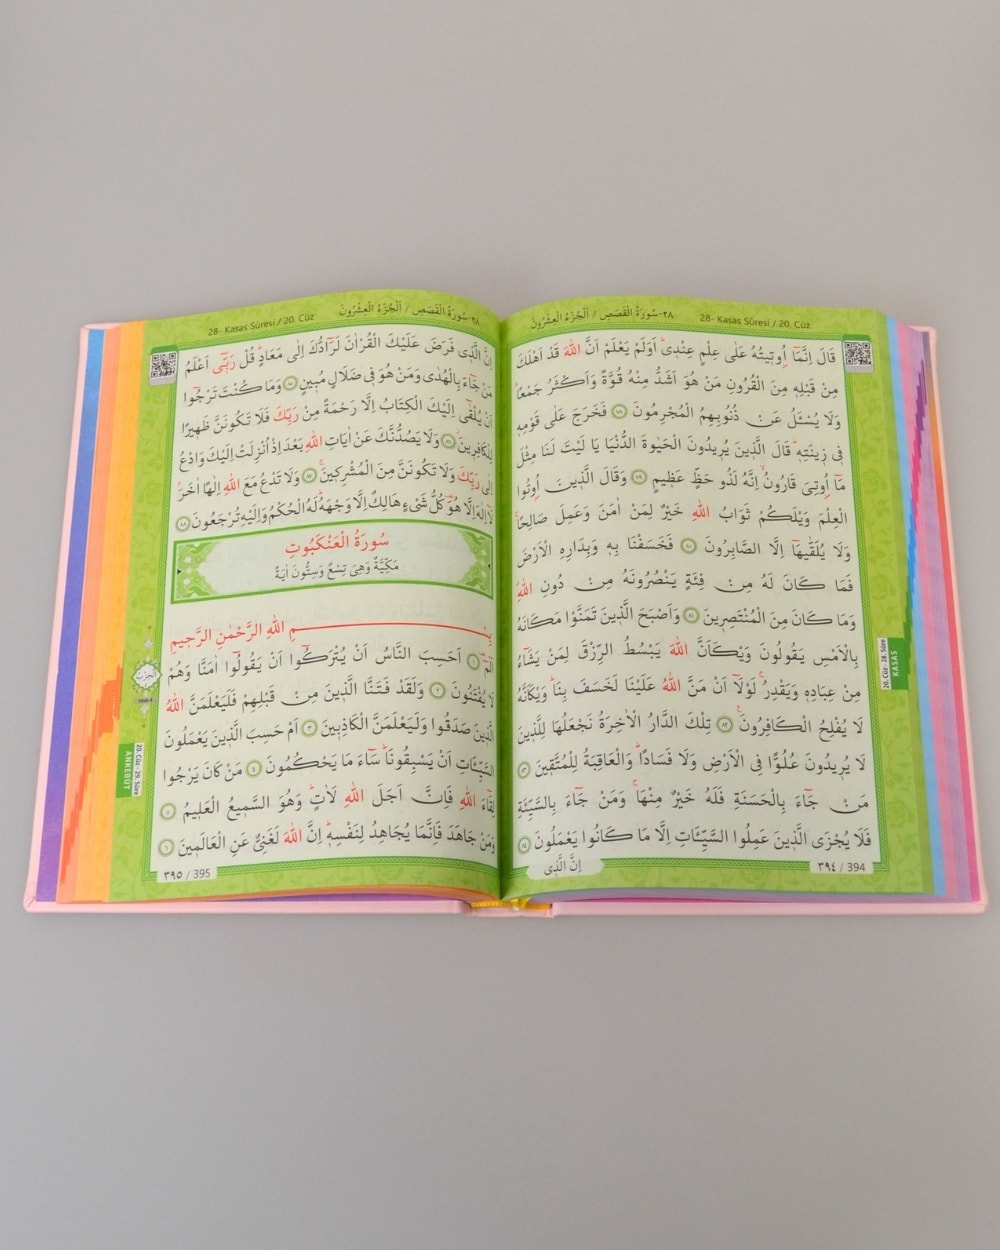 28- Kasas Sûresi / 20. Cüz
٢٨-سُورَةُ الْقَصَصِ / اَلْجُزْءُ الْعِشْرُونَ
قَالَ اِنَّمَٓا اُو۫ت۪يتُهُ عَلٰى عِلْمٍ عِنْد۪يۜ اَوَلَمْ يَعْلَمْ اَنَّ اللّٰهَ قَدْ اَهْلَكَ
مِنْ قَبْلِه۪ مِنَ الْقُرُونِ مَنْ هُوَ اَشَدُّ مِنْهُ قُوَّةً وَاَكْثَرُ جَمْعًاۜ
وَلَا يُسْـَٔلُ عَنْ ذُنُوبِهِمُ الْمُجْرِمُونَ ﴿٧٨﴾ فَخَرَجَ عَلٰى قَوْمِه۪
ف۪ي ز۪ينَتِه۪ۜ قَالَ الَّذ۪ينَ يُر۪يدُونَ الْحَيٰوةَ الدُّنْيَا يَا لَيْتَ لَنَا مِثْلَ
مَٓا اُو۫تِيَ قَارُونُۙ اِنَّهُ لَذُو حَظٍّ عَظ۪يمٍ ﴿٧٩﴾ وَقَالَ الَّذ۪ينَ اُو۫تُوا
الْعِلْمَ وَيْلَكُمْ ثَوَابُ اللّٰهِ خَيْرٌ لِمَنْ اٰمَنَ وَعَمِلَ صَالِحًاۚ
وَلَا يُلَقّٰيهَٓا اِلَّا الصَّابِرُونَ ﴿٨٠﴾ فَخَسَفْنَا بِه۪ وَبِدَارِهِ الْاَرْضَ
فَمَا كَانَ لَهُ مِنْ فِئَةٍ يَنْصُرُونَهُ مِنْ دُونِ اللّٰهِۗ
وَمَا كَانَ مِنَ الْمُنْتَصِر۪ينَ ﴿٨١﴾ وَاَصْبَحَ الَّذ۪ينَ تَمَنَّوْا مَكَانَهُ
بِالْاَمْسِ يَقُولُونَ وَيْكَاَنَّ اللّٰهَ يَبْسُطُ الرِّزْقَ لِمَنْ يَشَٓاءُ
مِنْ عِبَادِه۪ وَيَقْدِرُۚ لَوْلَٓا اَنْ مَنَّ اللّٰهُ عَلَيْنَا لَخَسَفَ بِنَاۜ وَيْكَاَنَّهُ
لَا يُفْلِحُ الْكَافِرُونَ ﴿٨٢﴾ تِلْكَ الدَّارُ الْاٰخِرَةُ نَجْعَلُهَا لِلَّذ۪ينَ
لَا يُر۪يدُونَ عُلُوًّا فِي الْاَرْضِ وَلَا فَسَادًاۜ وَالْعَاقِبَةُ لِلْمُتَّق۪ينَ ﴿٨٣﴾
مَنْ جَٓاءَ بِالْحَسَنَةِ فَلَهُ خَيْرٌ مِنْهَاۚ وَمَنْ جَٓاءَ بِالسَّيِّئَةِ
فَلَا يُجْزَى الَّذ۪ينَ عَمِلُوا السَّيِّـَٔاتِ اِلَّا مَا كَانُوا يَعْمَلُونَ ﴿٨٤﴾
اِنَّ الَّذ۪ي
٣٩٤ / 394
20. Cüz - 28. Sûre
KASAS
28- Kasas Sûresi / 20. Cüz
٢٨-سُورَةُ الْقَصَصِ / اَلْجُزْءُ الْعِشْرُونَ
اِنَّ الَّذ۪ي فَرَضَ عَلَيْكَ الْقُرْاٰنَ لَرَٓادُّكَ اِلٰى مَعَادٍۜ قُلْ رَبّ۪ٓي اَعْلَمُ
مَنْ جَٓاءَ بِالْهُدٰى وَمَنْ هُوَ ف۪ي ضَلَالٍ مُب۪ينٍ ﴿٨٥﴾ وَمَا كُنْتَ تَرْجُٓوا
اَنْ يُلْقٰٓى اِلَيْكَ الْكِتَابُ اِلَّا رَحْمَةً مِنْ رَبِّكَ فَلَا تَكُونَنَّ ظَه۪يرًا
لِلْكَافِر۪ينَۘ ﴿٨٦﴾ وَلَا يَصُدُّنَّكَ عَنْ اٰيَاتِ اللّٰهِ بَعْدَ اِذْ اُنْزِلَتْ اِلَيْكَ وَادْعُ
اِلٰى رَبِّكَ وَلَا تَكُونَنَّ مِنَ الْمُشْرِك۪ينَۚ ﴿٨٧﴾ وَلَا تَدْعُ مَعَ اللّٰهِ اِلٰهًا اٰخَرَۢ
لَٓا اِلٰهَ اِلَّا هُوَ۠ كُلُّ شَيْءٍ هَالِكٌ اِلَّا وَجْهَهُۜ لَهُ الْحُكْمُ وَاِلَيْهِ تُرْجَعُونَ ﴿٨٨﴾
سُورَةُ الْعَنْكَبُوتِ
مَكِّيَّةٌ وَهِيَ تِسْعٌ وَسِتُّونَ اٰيَةً
بِسْمِ اللّٰهِ الرَّحْمٰنِ الرَّح۪يمِ
الٓمٓۜ ﴿١﴾ اَحَسِبَ النَّاسُ اَنْ يُتْرَكُٓوا اَنْ يَقُولُٓوا اٰمَنَّا وَهُمْ
لَا يُفْتَنُونَ ﴿٢﴾ وَلَقَدْ فَتَنَّا الَّذ۪ينَ مِنْ قَبْلِهِمْ فَلَيَعْلَمَنَّ اللّٰهُ
الَّذ۪ينَ صَدَقُوا وَلَيَعْلَمَنَّ الْكَاذِب۪ينَ ﴿٣﴾ اَمْ حَسِبَ الَّذ۪ينَ يَعْمَلُونَ
السَّيِّـَٔاتِ اَنْ يَسْبِقُونَاۜ سَٓاءَ مَا يَحْكُمُونَ ﴿٤﴾ مَنْ كَانَ يَرْجُوا
لِقَٓاءَ اللّٰهِ فَاِنَّ اَجَلَ اللّٰهِ لَاٰتٍۜ وَهُوَ السَّم۪يعُ الْعَل۪يمُ ﴿٥﴾
وَمَنْ جَاهَدَ فَاِنَّمَا يُجَاهِدُ لِنَفْسِه۪ۜ اِنَّ اللّٰهَ لَغَنِيٌّ عَنِ الْعَالَم۪ينَ ﴿٦﴾
٣٩٥ / 395
الحزب
20. Cüz - 29. Sûre
ANKEBUT